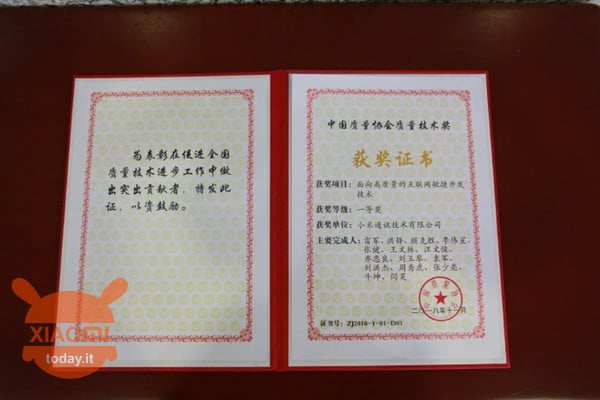 为表彰在促进全国
质量技术进步工作中做
出突出贡献者，特发此
证，以资鼓励。
中国质量协会质量技术奖
获奖证书
获奖项目：面向高质量的互联网敏捷开发
技术
获奖等级：一等奖
获奖单位：小米通讯技术有限公司
主要完成人：雷军、洪锋、颜克胜、李伟星、
张健、王文林、汪文俊、
乔忠良、刘玉琴、袁军、
刘洪杰、周秀虎、张少亮、
牛坤、闫昊
二〇一八年十一月
证书号：ZJ2018-1-01-D01
XIAOMI
today.it